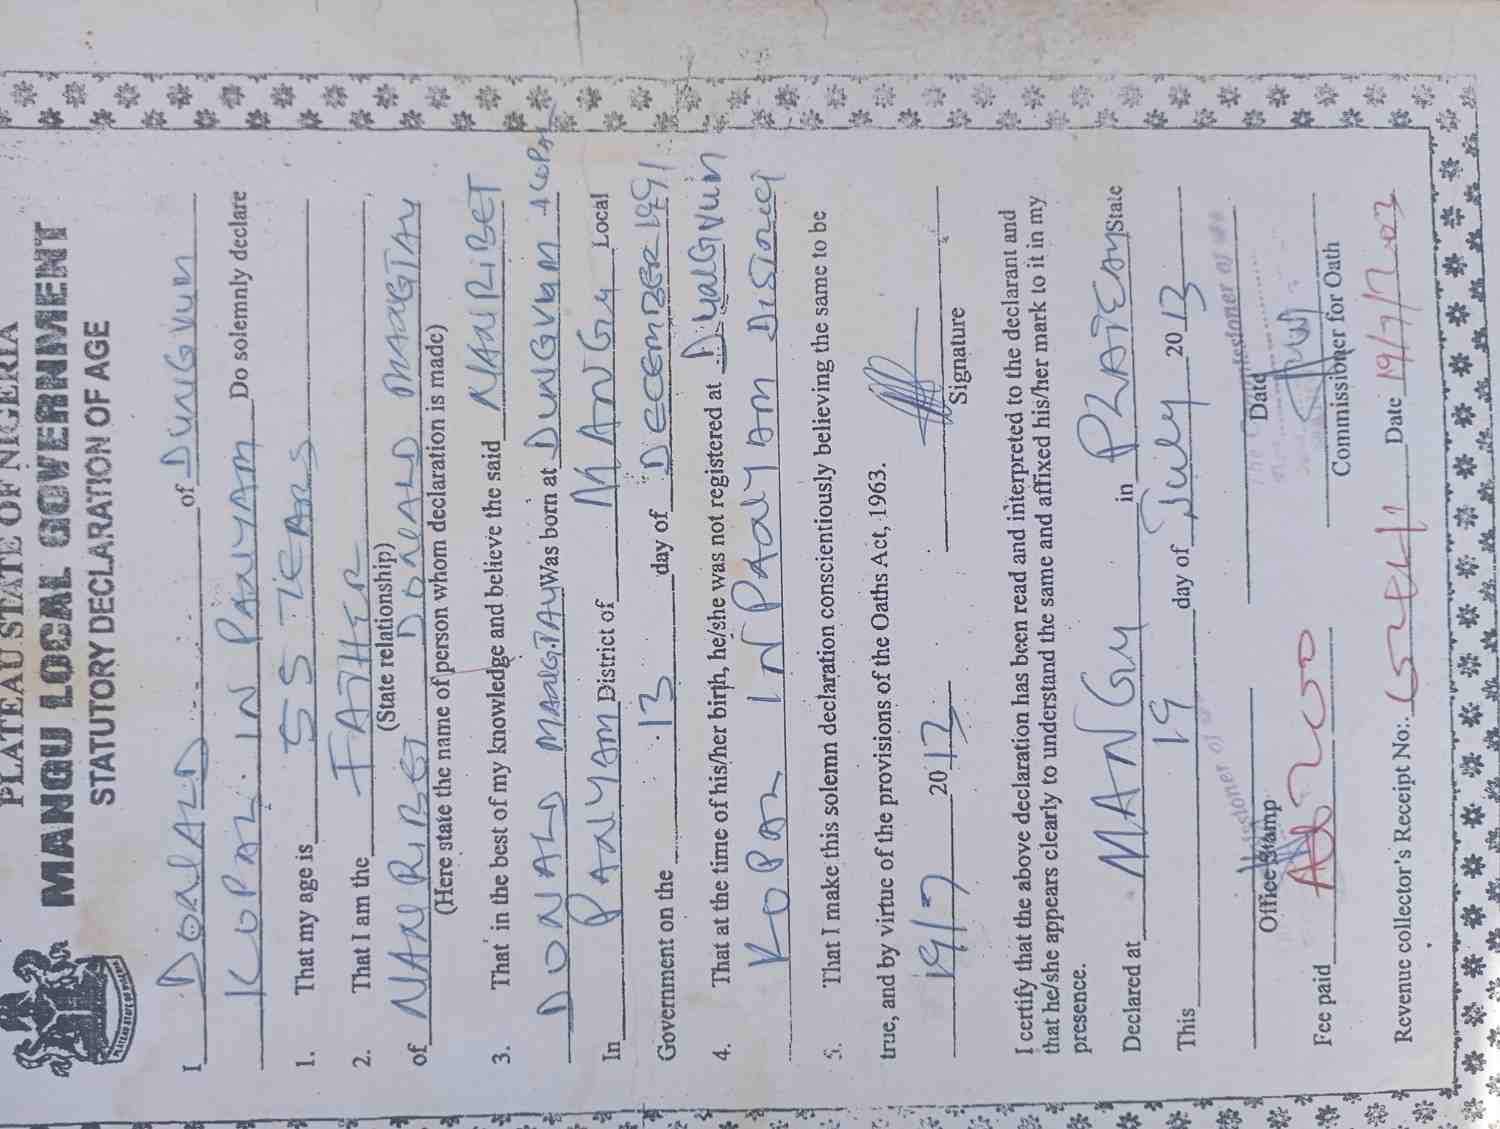 PLATEAU STATE OF NIGERIA
MANGU LOCAL GOVERNMENT
STATUTORY DECLARATION OF AGE
PLATEAU STATE OF NIGERIA
I DONALD of DUNGVUM
KOPAL IN PANYAM Do solemnly declare
1. That my age is 55 YEARS
2. That I am the FATHER
(State relationship)
of NANRIBET DONALD MANGTAY
(Here state the name of person whom declaration is made)
3. That in the best of my knowledge and believe the said NANRIBET
DONALD MANGTAY Was born at DUNGVUM KOPAL
In PANYAM District of MANGU Local
Government on the 13 day of DECEMBER 1991
4. That at the time of his/her birth, he/she was not registered at DUNGVUM
KOPAL IN PANYAM DISTRICT
5. That I make this solemn declaration conscientiously believing the same to be
true, and by virtue of the provisions of the Oaths Act, 1963.
19/7 2013
Signature
I certify that the above declaration has been read and interpreted to the declarant and
that he/she appears clearly to understand the same and affixed his/her mark to it in my
presence.
Declared at MANGU in PLATEAU State
This 19 day of July 2013
Office Stamp Date
Fee paid
Commissioner for Oath
Revenue collector's Receipt No: Date 19/7/2013